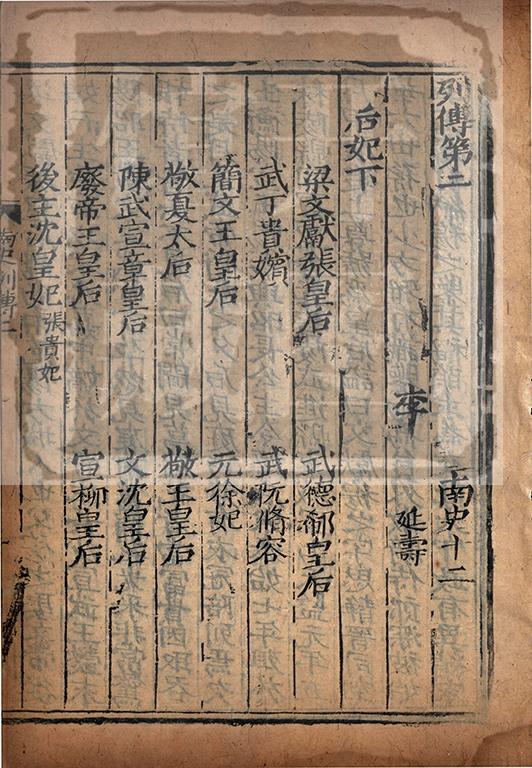 列傳第二 南史十二
李 延壽
后妃下
梁文獻張皇后 武德郗皇后
武丁貴嬪 武阮脩容
簡文王皇后 元徐妃
敬夏太后 敬王皇后
陳武宣章皇后 文沈皇后
廢帝王皇后 宣柳皇后
後主沈皇妃 張貴妃
南史列傳二